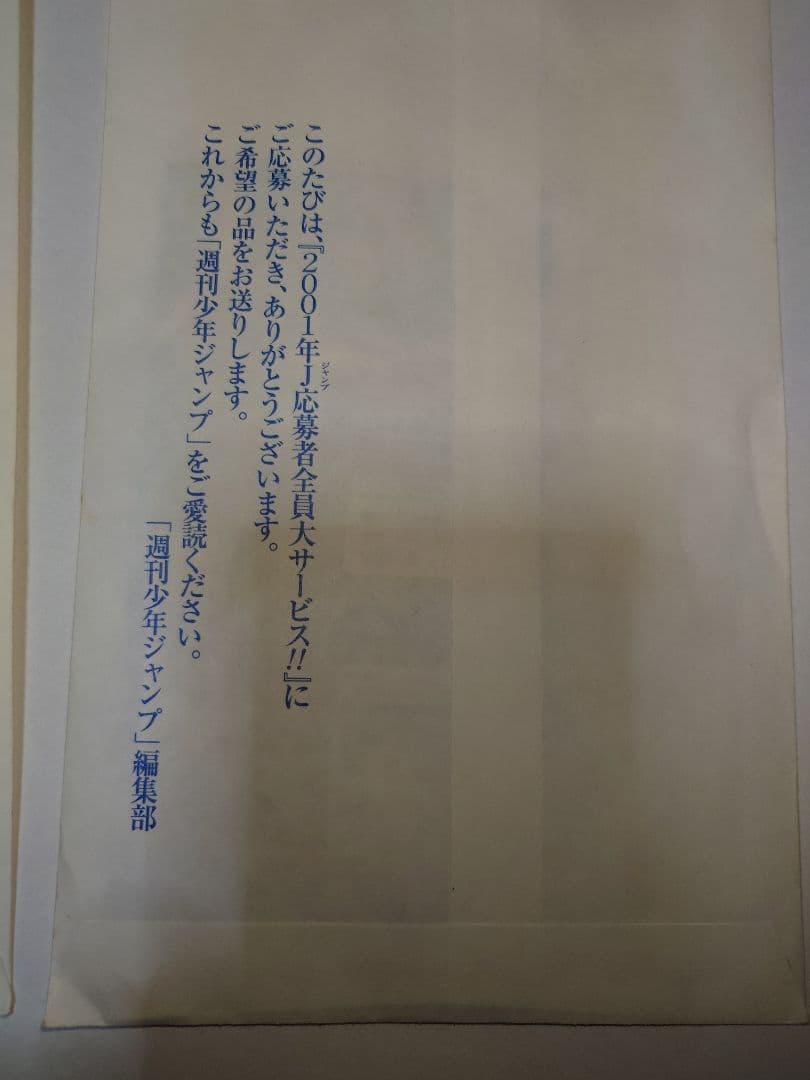 このたびは、『2001年J応募者全員大サービス!!』に
ジャンプ
ご応募いただき、ありがとうございます。
ご希望の品をお送りします。
これからも「週刊少年ジャンプ」をご愛読ください。
「週刊少年ジャンプ」編集部